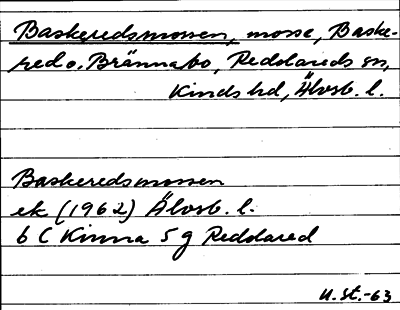 Baskeredsmossen, mosse, Baske-
red o. Brännabo, Reddareds sn,
Kinds hd, Älvsb. l.
Baskeredsmossen
ek (1962) Älvsb. l.
6 C Kinna 5 g Reddared
U. St.-63